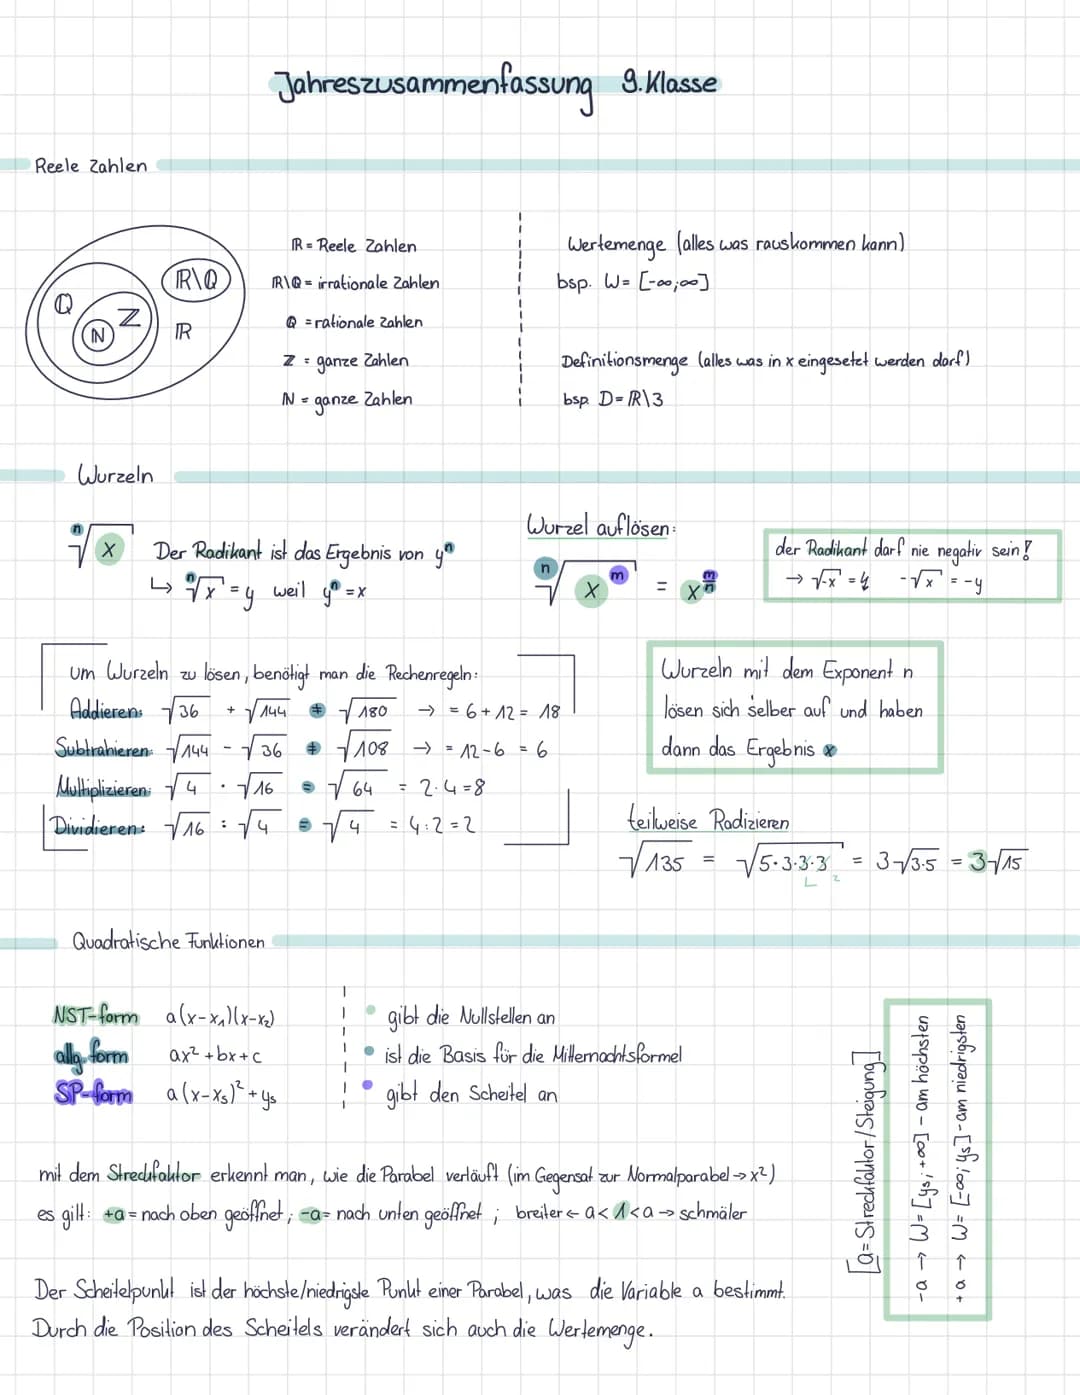 Jahreszusammenfassung 9. Klasse
Reele Zahlen
Q
N
Z
R\Q
R
ℝ = Reele Zahlen
ℝ\Q = irrationale Zahlen
Q = rationale Zahlen
Z = ganze Zahlen
N = ganze Zahlen
Wertemenge (alles was rauskommen kann)
bsp. W= [-∞;∞]
Definitionsmenge (alles was in x eingesetzt werden darf)
bsp. D= ℝ\3
Wurzeln
ⁿ√x Der Radikant ist das Ergebnis von yⁿ
↳ ⁿ√x = y weil yⁿ = x
Wurzel auflösen:
ⁿ√xᵐ = x^(m/n)
der Radikant darf nie negativ sein!
→ √-x = y -√x = -y
um Wurzeln zu lösen, benötigt man die Rechenregeln:
Addieren: √36 + √144 ≠ √180 → = 6+12 = 18
Subtrahieren: √144 - √36 ≠ √108 → = 12-6 = 6
Multiplizieren: √4 · √16 = √64 = 2·4=8
Dividieren: √16 : √4 = √4 = 4:2=2
Wurzeln mit dem Exponent n
lösen sich selber auf und haben
dann das Ergebnis x
teilweise Radizieren
√135 = √5·3·3·3 = 3√3·5 = 3√15
2
Quadratische Funktionen
NST-form a(x-x₁)(x-x₂)
allg. form ax² + bx + c
SP-form a(x-xs)² + ys
• gibt die Nullstellen an
• ist die Basis für die Mitternachtsformel
• gibt den Scheitel an
[a = Streckfaktor/Steigung]
-a → W= [ys; +∞] - am höchsten
+a → W= [-∞; ys] - am niedrigsten
mit dem Streckfaktor erkennt man, wie die Parabel verläuft (im Gegensat zur Normalparabel → x²)
es gilt: +a = nach oben geöffnet ; -a = nach unten geöffnet ; breiter ← a < 1 < a → schmäler
Der Scheitelpunkt ist der höchste/niedrigste Punkt einer Parabel, was die Variable a bestimmt.
Durch die Position des Scheitels verändert sich auch die Wertemenge.